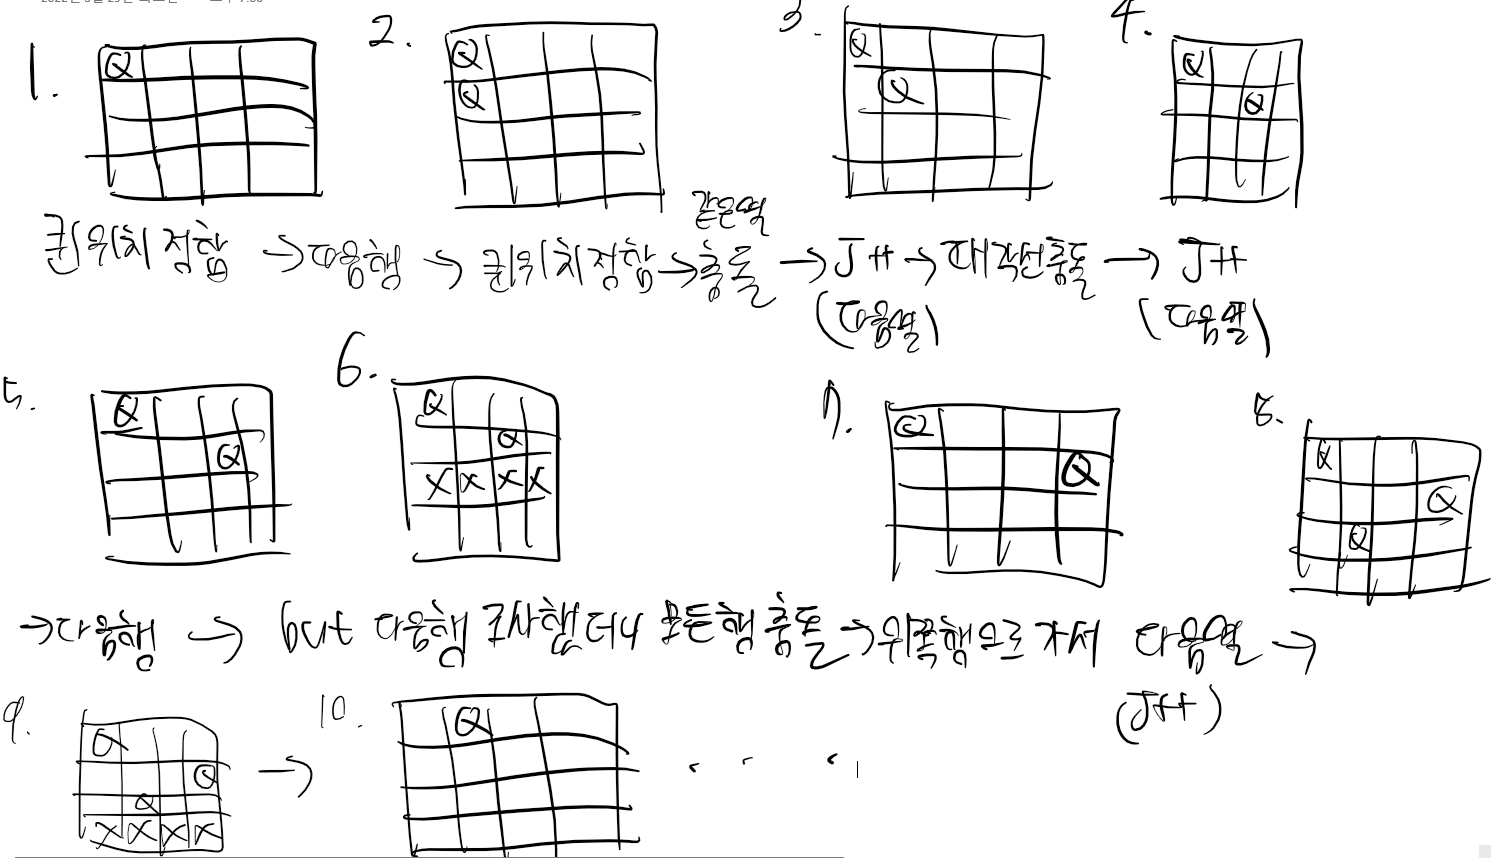 1. 2. 3. 4.
Q Q Q Q
Q Q Q
같은열
퀸위치 정함 → 다음행 → 퀸위치정함 → 충돌 → J++ → 대각선충돌 → J++
(다음열) (다음열)
5. 6. 7. 8.
Q Q Q Q
Q Q Q Q
X X X X Q
→다음행 → but 다음행 조사했더니 모든행 충돌 → 위쪽행으로 가서 다음열 →
(J++)
9. 10.
Q → Q . . .
Q
Q
X X X X